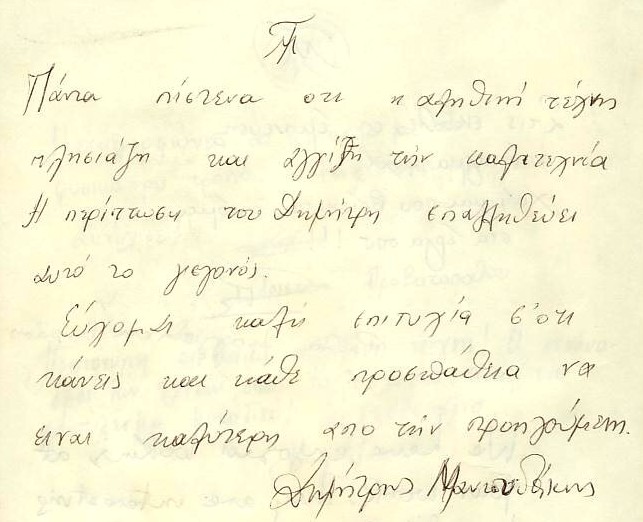 Πάντα πίστευα οτι η αληθινή τέχνη
πλησιάζη και αγγίζη την καλλιτεχνία
Η περίπτωση του Δημήτρη επαληθεύει
αυτό το γεγονός.
Εύχομαι καλή επιτυχία σ'οτι
κάνεις και κάθε προσπάθεια να
ειναι καλύτερη απο την προηγούμενη.
Δημήτρης